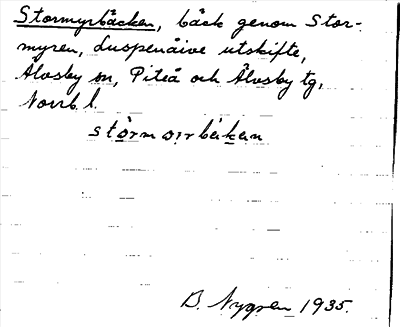 Stormyrbäcken, bäck genom Stor-
myren, Luspenåive utskifte,
Älvsby sn, Piteå och Älvsby tg,
Norrb. l.
störmyrbekən
B. Nygren 1935.